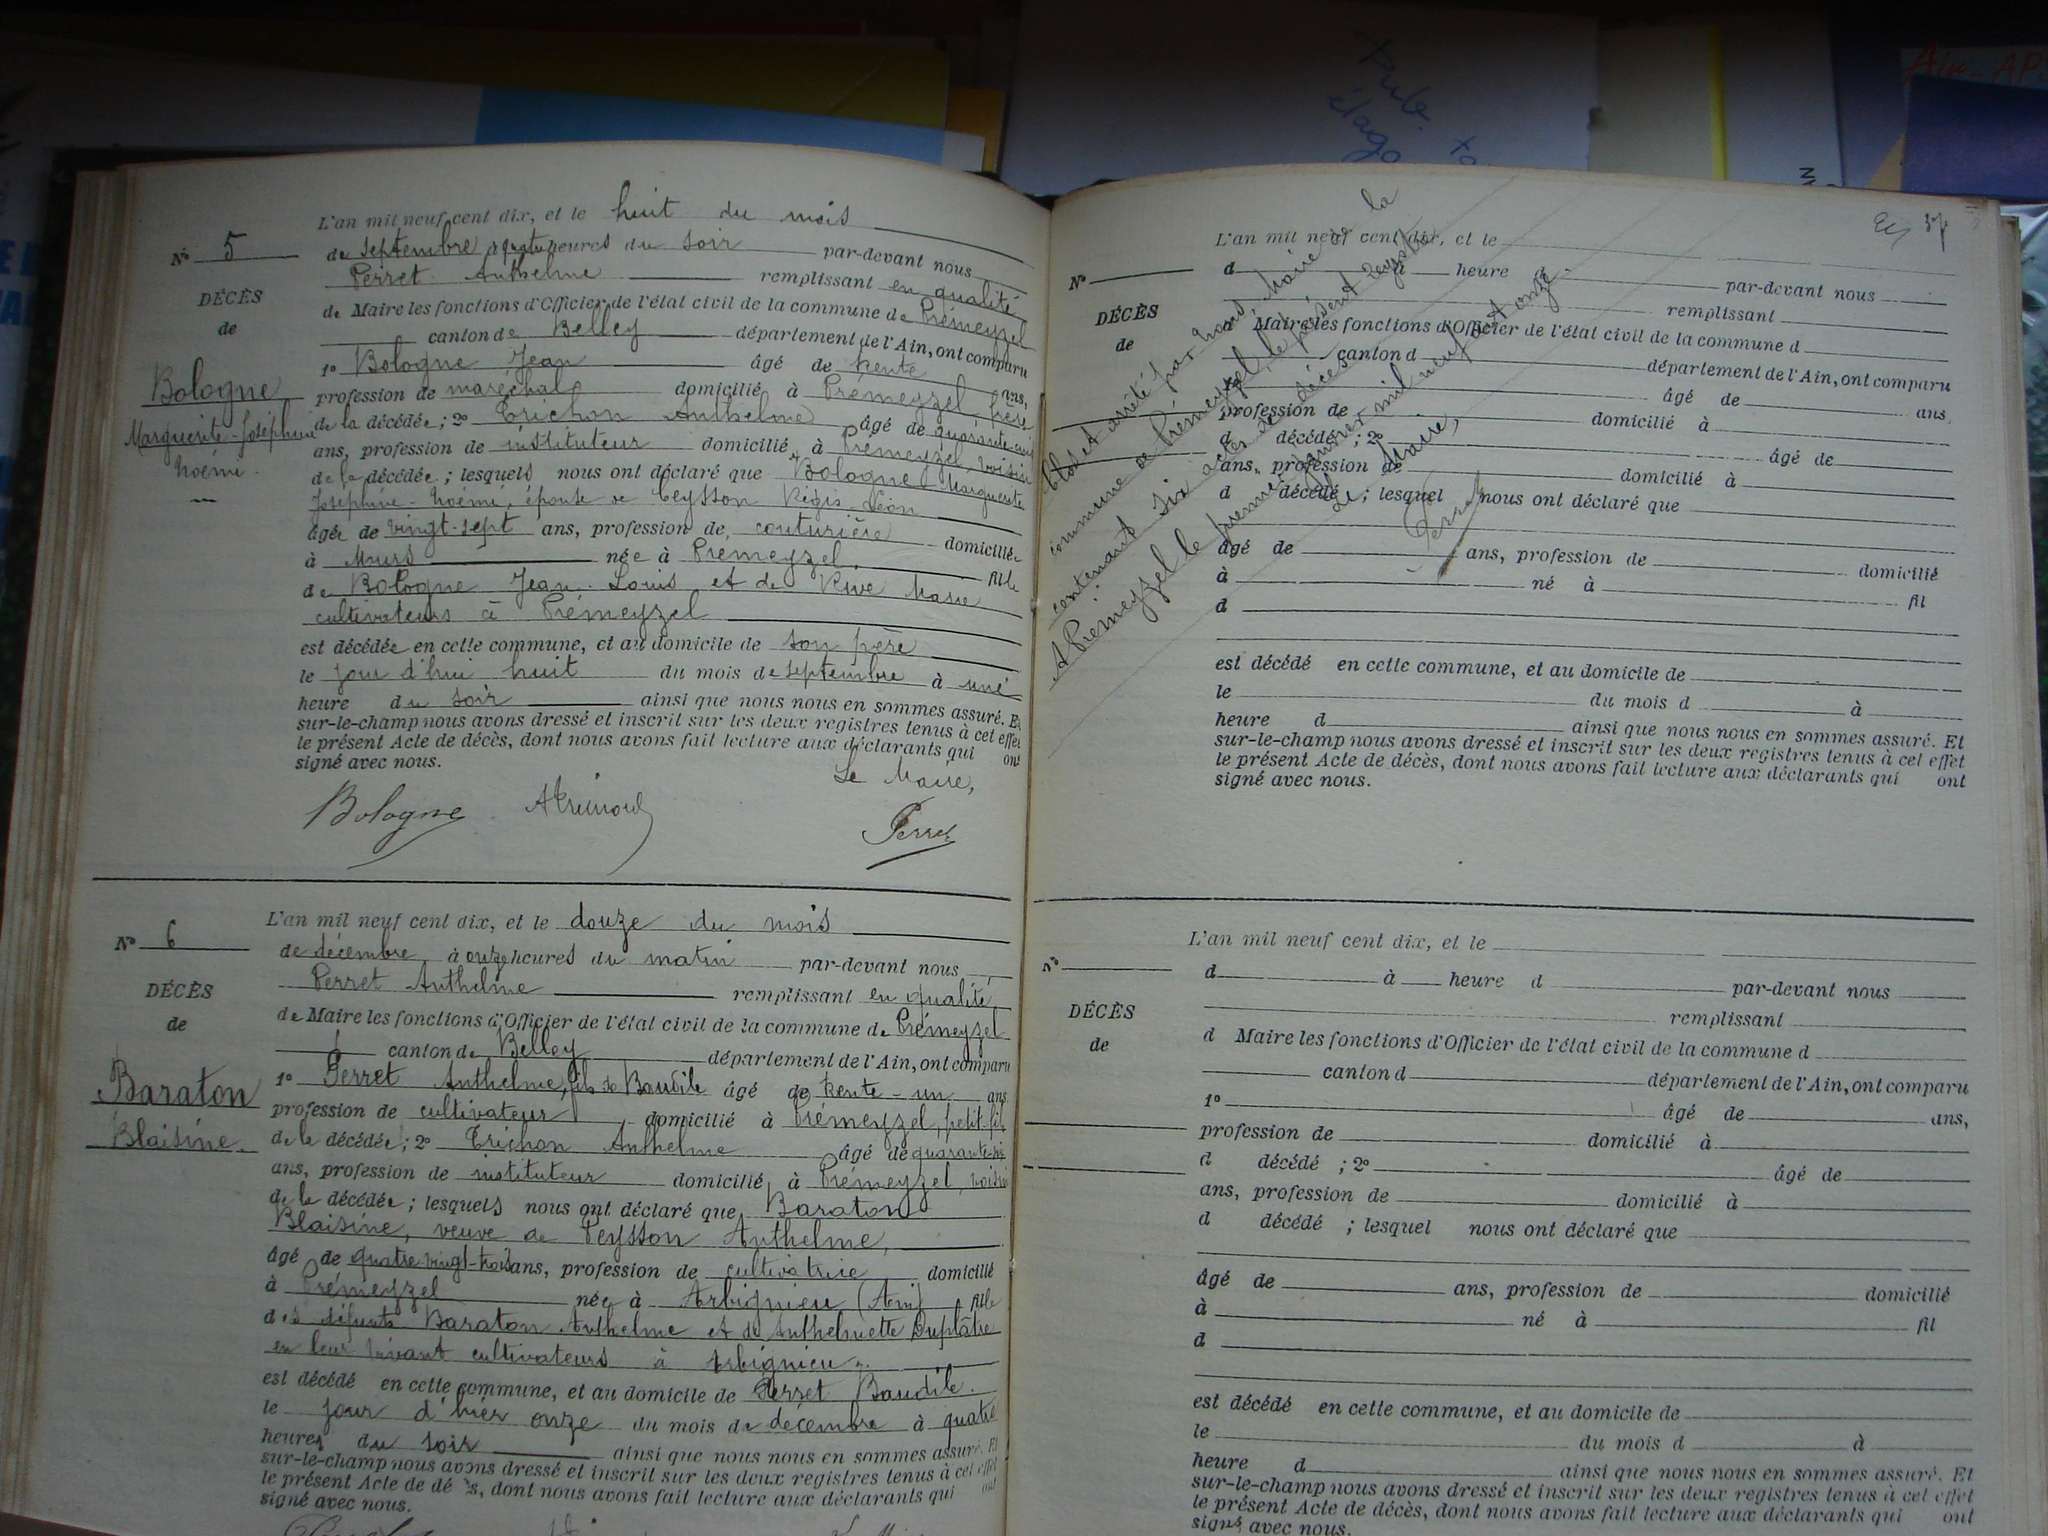 Pub.
élago
Ain - AP
L'an mil neuf cent dix, et le huit du mois
No 5
de septembre à quatre heures du soir par-devant nous
Perret Anthelme remplissant en qualité
DÉCÈS
de
de Maire les fonctions d'Officier de l'état civil de la commune de Prémeyzel
canton de Belley département de l'Ain, ont comparu
1o Bologne Jean âgé de trente ans,
Bologne
Marguerite-Joséphine
Noémi.
profession de maréchal domicilié à Prémeyzel, frère
de la décédée; 2o Trichon Anthelme âgé de quarante-cinq
ans, profession de instituteur domicilié à Prémeyzel, voisin
de la décédée; lesquels nous ont déclaré que Bologne Marguerite
Joséphine-Noémi, épouse de Teysson Régis Léon
âgée de vingt-sept ans, profession de couturière domiciliée
à Murs née à Prémeyzel. fille
de Bologne Jean-Louis et de Rive Marie
cultivateurs à Prémeyzel
est décédée en cette commune, et au domicile de son père
le jour d'hui huit du mois de septembre à une
heure du soir ainsi que nous nous en sommes assuré. Et
sur-le-champ nous avons dressé et inscrit sur les deux registres tenus à cet effet
le présent Acte de décès, dont nous avons fait lecture aux déclarants qui ont
signé avec nous.
Le Maire,
Bologne
Perret
L'an mil neuf cent dix, et le douze du mois
No 6
de décembre à onze heures du matin par-devant nous
Perret Anthelme remplissant en qualité
DÉCÈS
de
de Maire les fonctions d'Officier de l'état civil de la commune de Prémeyzel
canton de Belley département de l'Ain, ont comparu
1o Perret Anthelme, fils de Baudile âgé de trente-un ans
Baraton
Blaisine.
profession de cultivateur domicilié à Prémeyzel, petit-fils
de la décédée; 2o Trichon Anthelme âgé de quarante-six
ans, profession de instituteur domicilié à Prémeyzel, voisin
de la décédée; lesquels nous ont déclaré que Baraton
Blaisine, veuve de Peysson Anthelme,
âgé de quatre-vingt-trois ans, profession de cultivatrice domicilié
à Prémeyzel née à Arbignieu (Ain) fille
des défunts Baraton Anthelme et de Anthelmette Duplâtre
en leur vivant cultivateurs à Arbignieu.
est décédé en cette commune, et au domicile de Perret Baudile.
le jour d'hier onze du mois de décembre à quatre
heures du soir ainsi que nous nous en sommes assuré. Et
sur-le-champ nous avons dressé et inscrit sur les deux registres tenus à cet effet
le présent Acte de décès, dont nous avons fait lecture aux déclarants qui ont
signé avec nous.
37
Clos et arrêté par nous, Maire de la
commune de Prémeyzel, le présent registre
contenant six actes de décès
A Prémeyzel le premier janvier mil neuf cent onze
Le Maire,
Perret
L'an mil neuf cent dix, et le
No
d à heure d par-devant nous
remplissant
DÉCÈS
de
d Maire les fonctions d'Officier de l'état civil de la commune d
canton d département de l'Ain, ont comparu
âgé de ans,
profession de domicilié à
d décédé ; 2o âgé de
ans, profession de domicilié à
d décédé ; lesquel nous ont déclaré que
âgé de ans, profession de domicilié
à né à fil
d
est décédé en cette commune, et au domicile de
le du mois d à
heure d ainsi que nous nous en sommes assuré. Et
sur-le-champ nous avons dressé et inscrit sur les deux registres tenus à cet effet
le présent Acte de décès, dont nous avons fait lecture aux déclarants qui ont
signé avec nous.
L'an mil neuf cent dix, et le
No
d à heure d par-devant nous
remplissant
DÉCÈS
de
d Maire les fonctions d'Officier de l'état civil de la commune d
canton d département de l'Ain, ont comparu
1o âgé de ans,
profession de domicilié à
d décédé ; 2o âgé de
ans, profession de domicilié à
d décédé ; lesquel nous ont déclaré que
âgé de ans, profession de domicilié
à né à fil
d
est décédé en cette commune, et au domicile de
le du mois d à
heure d ainsi que nous nous en sommes assuré. Et
sur-le-champ nous avons dressé et inscrit sur les deux registres tenus à cet effet
le présent Acte de décès, dont nous avons fait lecture aux déclarants qui ont
signé avec nous.